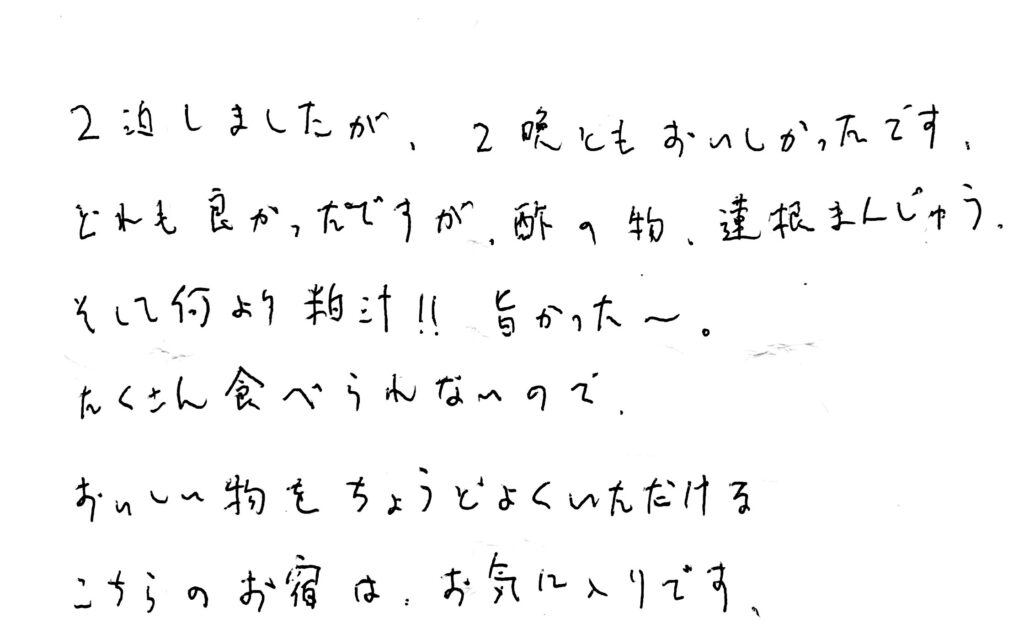 2泊しましたが、2晩ともおいしかったです、
どれも良かったですが、酢の物、蓮根まんじゅう、
そして何より粕汁!! 旨かった〜。
たくさん食べられないので、
おいしい物をちょうどよくいただける
こちらのお宿は、お気に入りです、